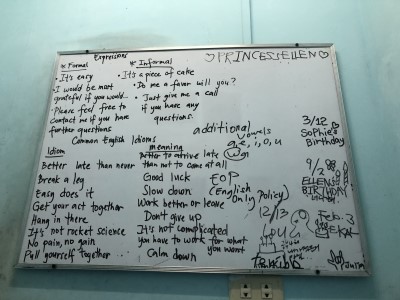 Expressions
* Formal
* Informal
♡PRINCESSELLEN♡
• It's easy
• It's a piece of cake
• I would be most grateful if you would...
• Do me a favor will you?
• Please feel free to contact me if you have further questions
• Just give me a call if you have any questions.
Common English Idioms
additional
vowels
a, e, i, o, u
3/12
Sophie's
Birthday
Idiom
meaning
Better late than never
Better to arrive late than not to come at all
Break a leg
Good luck
Easy does it
Slow down
Get your act together
Work better or leave
Hang in there
Don't give up
It's not rocket science
It's not complicated
No pain, no gain
you have to work for what you want
Pull yourself together
Calm down
EOP
(English Only Policy)
9/2
ELLEN'S
BIRTHDAY
12/13
Feb. 3